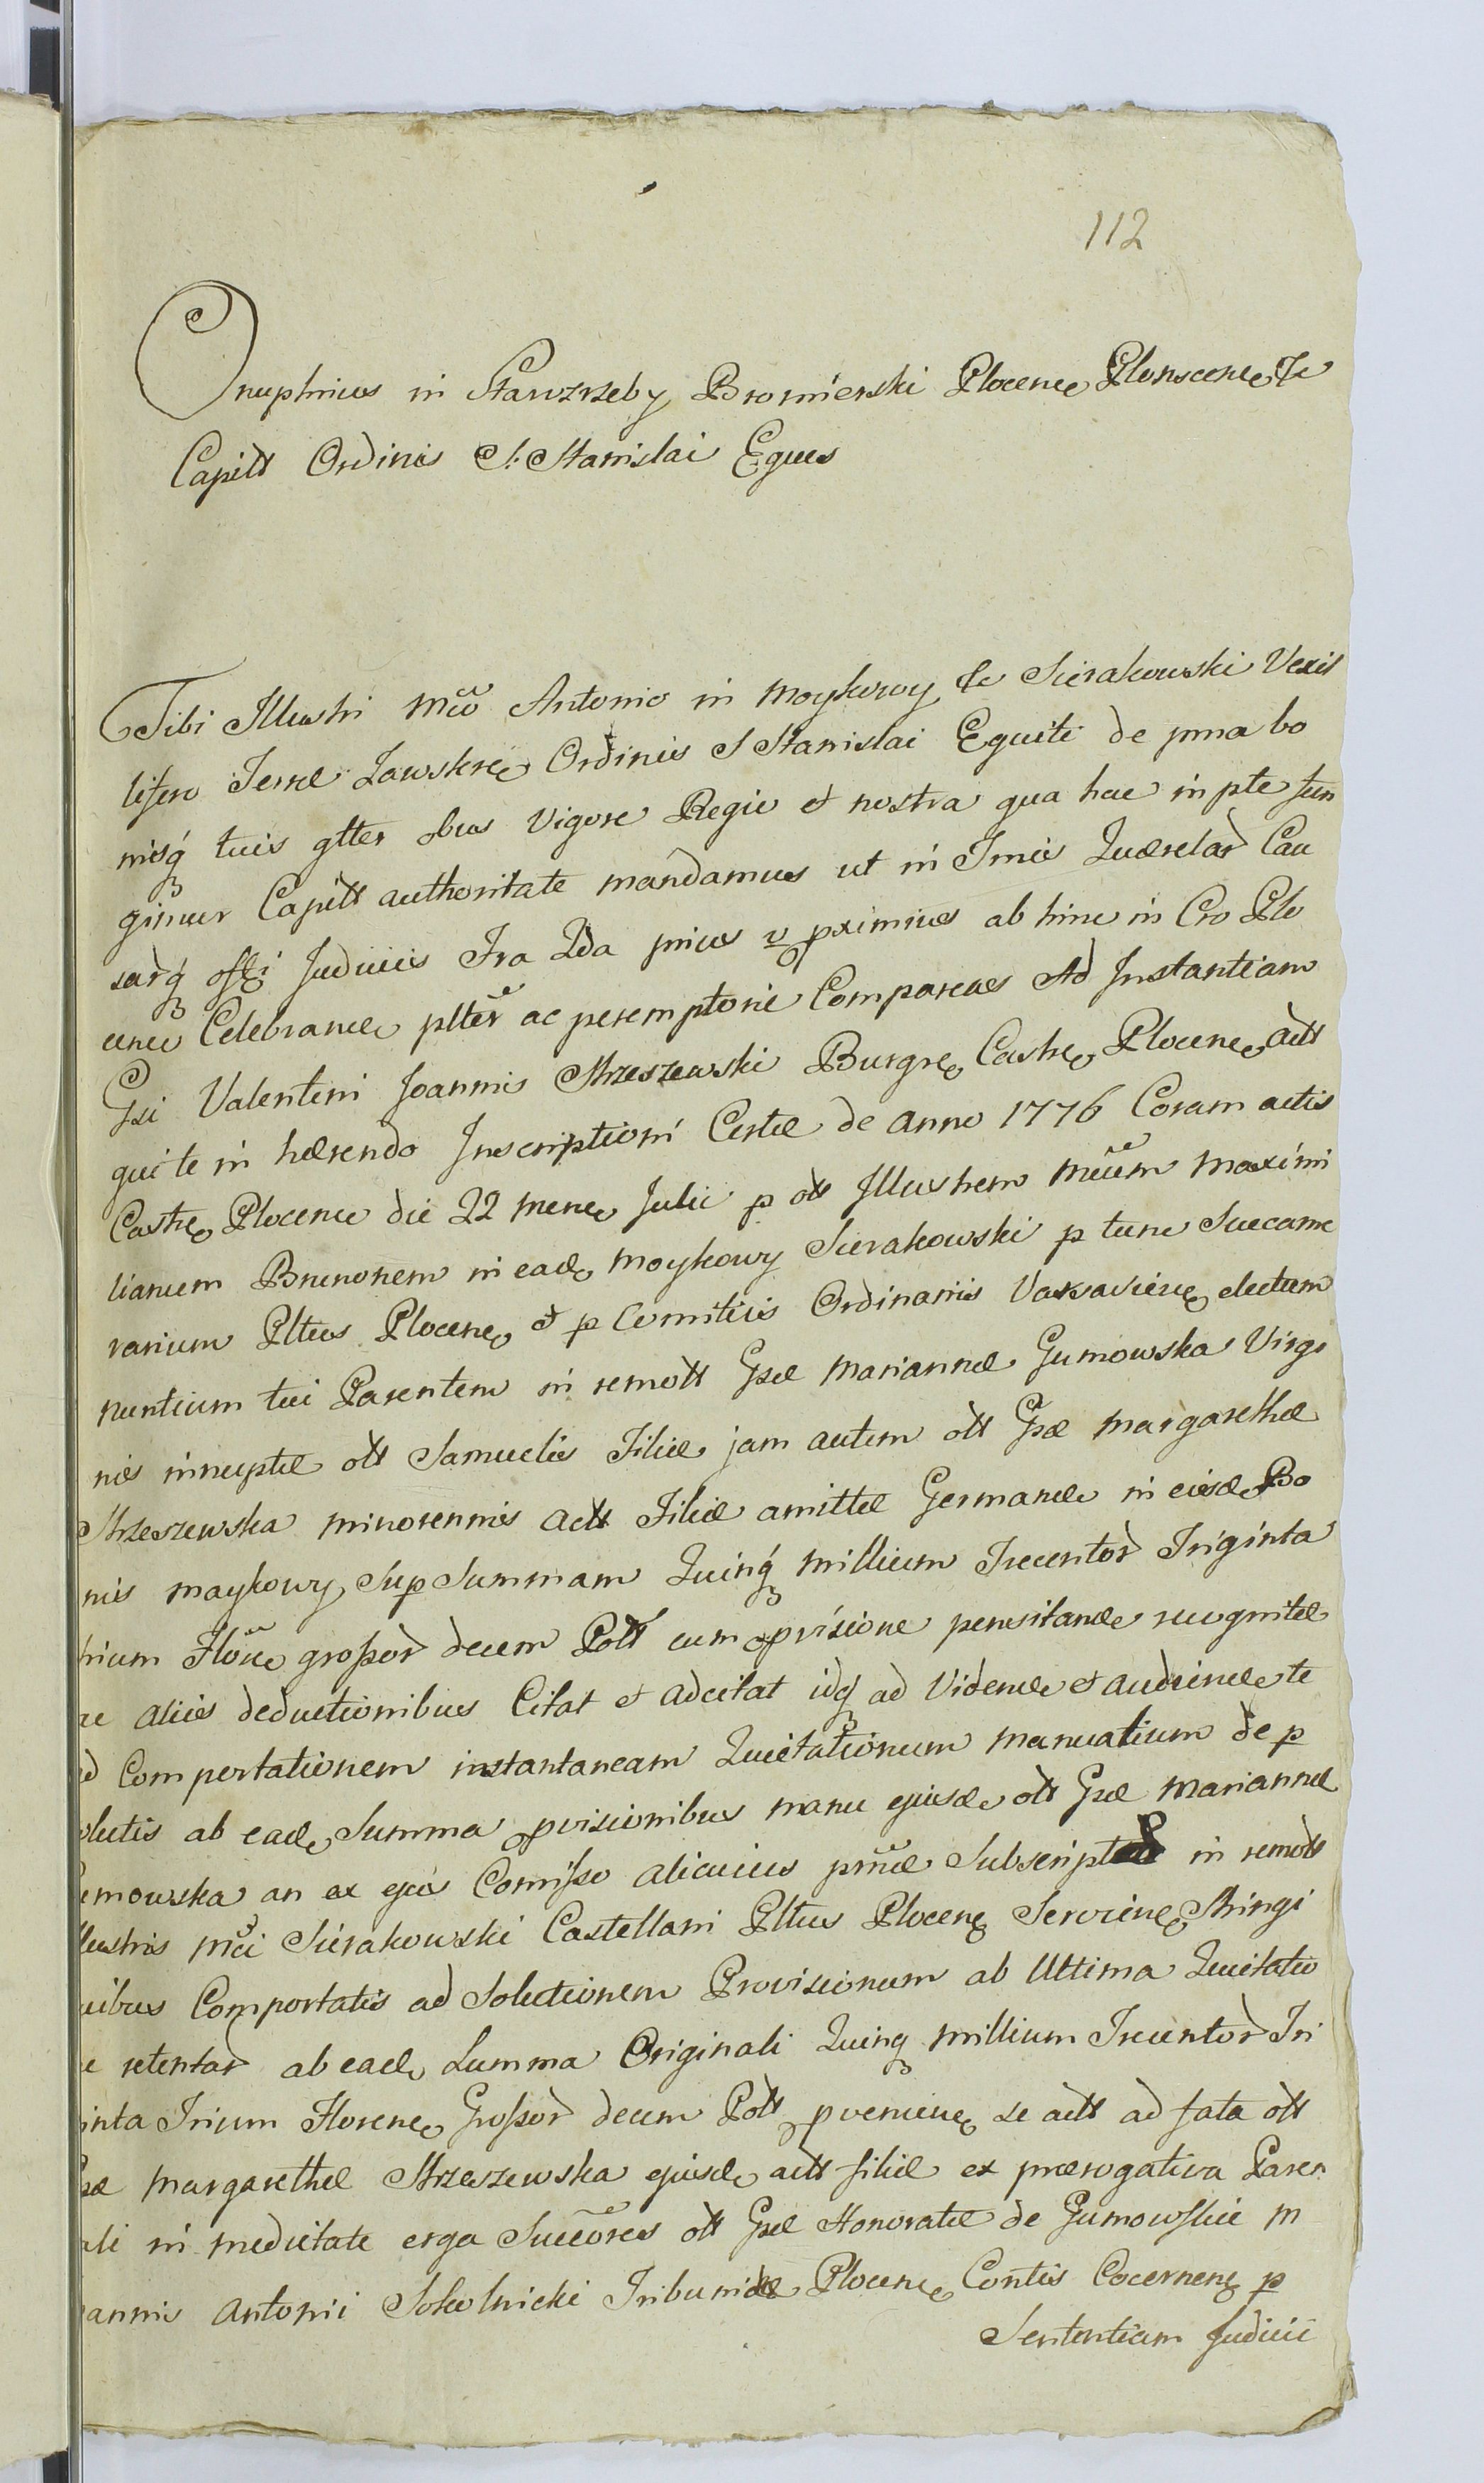 112
Onuphrius in Starozrzeby Bromierski Plocen Plonscen &c
Capitt Ordinis S: Stanislai Eques
Tibi Illustri Mco Antonio in Moykowy &c Sierakowski Vexil
lifero Terræ Zawskrẽ Ordinis S Stanislai Equiti de pnna bo
nisq tuis gltter obus Vigore Regia et nostra qua hac in pte fun
gimur Capitt authoritate mandamus ut in Tmis Quærelar Cau
sarq offi Judiciis Fra 2da pnius v pximius ab hinc in Cro Plo
cenci Celebrand pltter ac peremptorie Compareas Ad Instantiam
Gsi Valentini Joannis Strzeszewski Burgre Castre Plocene actt
qui te in hærendo Inscriptioni Certæ de anno 1776 Coram actis
Castre Plocene die 22 mene Julii p ott Illustrem Mcum Maximi
lianum Brunonem in ead Moykowy Sierakowski p tunc Succame
rarium Pltus Plocen & p Comitiis Ordinariis Varsaviens electum
nuntium tui Parentem in remott Gsæ Mariannæ Gumowska Virgi
nis innuptæ ott Samuelis Filiæ jam autem ott Gsæ Margarethæ
Strzeszewska minorennis actt Filiæ amittæ Germanæ in eisd Bo
nis Maykowy, Sup Summam Quinq millium Trecentor Triginta
trium Floren grossor decem Pott cum pvisione pensitand recognitæ
ac aliis deductionibus Citat et adcitat idq ad Vidend et audiend te
ad Comportationem instantaneam Quietationum manualium de p
solutis ab ead Summa pvisionibus manu ejusd ott Gsæ Mariannæ
Gumowska an ex ejus Comisso alicuius pnnæ Subscriptar in remott
Illustris Mci Sierakowski Castellani Pltus Plocen Servien Stringi
quibus Comportatis ad Solutionem Provisionum ab Ultima Quietatio
ne retentar ab ead Summa Originali Quinq millium Trecentor Tri
ginta Trium Floren Grossor decem Pott pvenien se actt ad fata ott
Gsæ Margarethæ Strzeszewska ejusd actt filiæ ex prærogativa Paren
tali in medietate erga Succores ott Gsæ Honoratæ de Gumowskie
Joannis Antonii Sokolnicki Tribunidæ Plocen Contis Cocernen p
Sententiam Judicii